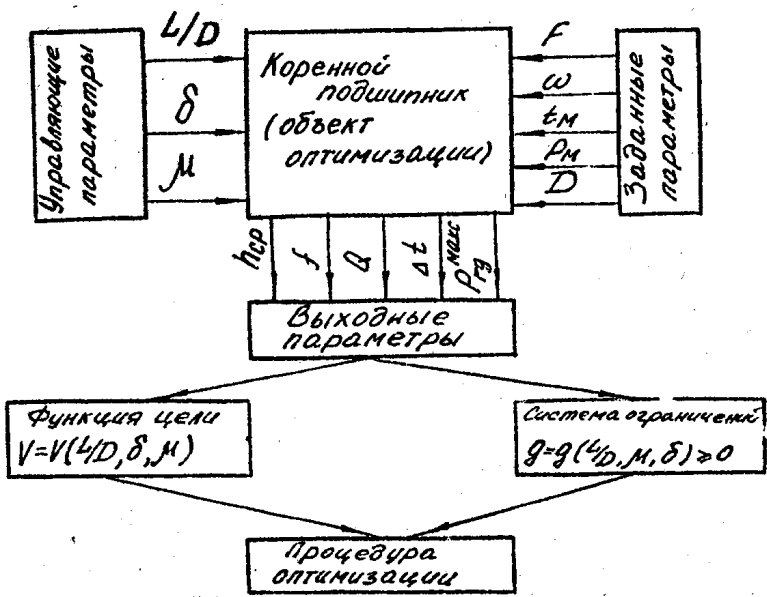 Управляющие
параметры
L/D
δ
μ
Коренной
подшипник
(объект
оптимизации)
F
ω
tм
Pм
D
Заданные
параметры
hср
f
Q
Δt
Pгд макс
Выходные
параметры
Функция цели
V=V(L/D,δ,μ)
Система ограничений
g=g(L/D,μ,δ)≥0
Процедура
оптимизации